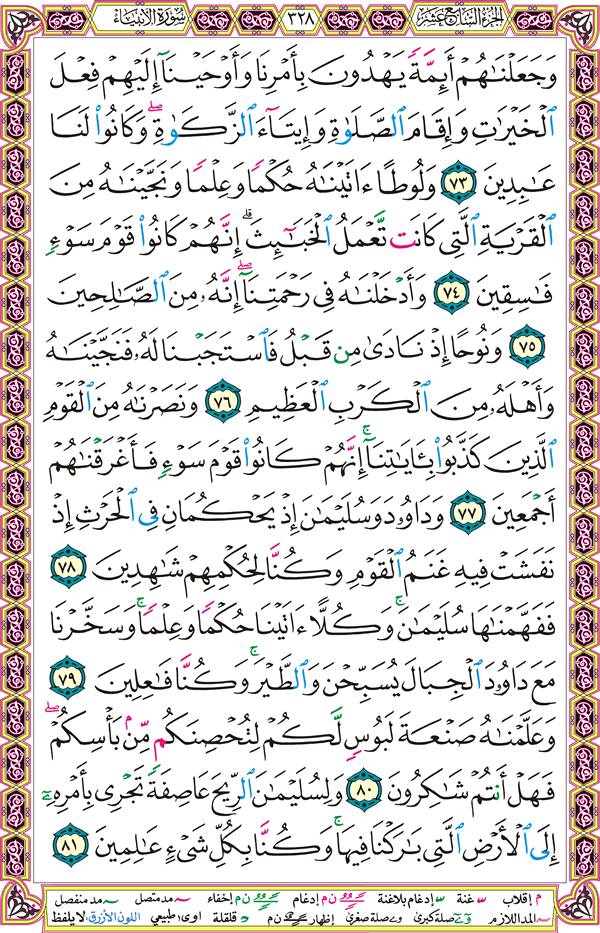 الجزء السابع عشر ٣٢٨ سورة الأنبياء
وَجَعَلْنَٰهُمْ أَئِمَّةً يَهْدُونَ بِأَمْرِنَا وَأَوْحَيْنَآ إِلَيْهِمْ فِعْلَ
ٱلْخَيْرَٰتِ وَإِقَامَ ٱلصَّلَوٰةِ وَإِيتَآءَ ٱلزَّكَوٰةِ ۖ وَكَانُوا۟ لَنَا
عَٰبِدِينَ ٧٣ وَلُوطًا ءَاتَيْنَٰهُ حُكْمًا وَعِلْمًا وَنَجَّيْنَٰهُ مِنَ
ٱلْقَرْيَةِ ٱلَّتِى كَانَت تَّعْمَلُ ٱلْخَبَٰٓئِثَ ۗ إِنَّهُمْ كَانُوا۟ قَوْمَ سَوْءٍ
فَٰسِقِينَ ٧٤ وَأَدْخَلْنَٰهُ فِى رَحْمَتِنَآ ۖ إِنَّهُۥ مِنَ ٱلصَّٰلِحِينَ
٧٥ وَنُوحًا إِذْ نَادَىٰ مِن قَبْلُ فَٱسْتَجَبْنَا لَهُۥ فَنَجَّيْنَٰهُ
وَأَهْلَهُۥ مِنَ ٱلْكَرْبِ ٱلْعَظِيمِ ٧٦ وَنَصَرْنَٰهُ مِنَ ٱلْقَوْمِ
ٱلَّذِينَ كَذَّبُوا۟ بِـَٔايَٰتِنَآ ۚ إِنَّهُمْ كَانُوا۟ قَوْمَ سَوْءٍ فَأَغْرَقْنَٰهُمْ
أَجْمَعِينَ ٧٧ وَدَاوُۥدَ وَسُلَيْمَٰنَ إِذْ يَحْكُمَانِ فِى ٱلْحَرْثِ إِذْ
نَفَشَتْ فِيهِ غَنَمُ ٱلْقَوْمِ وَكُنَّا لِحُكْمِهِمْ شَٰهِدِينَ ٧٨
فَفَهَّمْنَٰهَا سُلَيْمَٰنَ ۚ وَكُلًّا ءَاتَيْنَا حُكْمًا وَعِلْمًا ۚ وَسَخَّرْنَا
مَعَ دَاوُۥدَ ٱلْجِبَالَ يُسَبِّحْنَ وَٱلطَّيْرَ ۚ وَكُنَّا فَٰعِلِينَ ٧٩
وَعَلَّمْنَٰهُ صَنْعَةَ لَبُوسٍ لَّكُمْ لِتُحْصِنَكُم مِّنۢ بَأْسِكُمْ ۖ
فَهَلْ أَنتُمْ شَٰكِرُونَ ٨٠ وَلِسُلَيْمَٰنَ ٱلرِّيحَ عَاصِفَةً تَجْرِى بِأَمْرِهِۦٓ
إِلَى ٱلْأَرْضِ ٱلَّتِى بَٰرَكْنَا فِيهَا ۚ وَكُنَّا بِكُلِّ شَىْءٍ عَٰلِمِينَ ٨١
م إقلاب غنة إدغام بلاغنة ن م إدغام ن م إخفاء مد متصل مد منفصل
المد اللازم صلة كبرى صلة صغرى إظهار ن م قلقلة اوى طبيعي اللون الأزرق: لا يلفظ